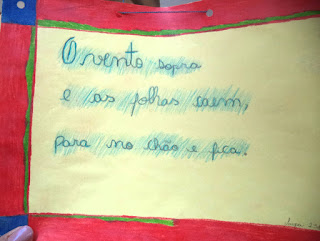 O vento sopra
e as folhas caem,
para no chão e fica.